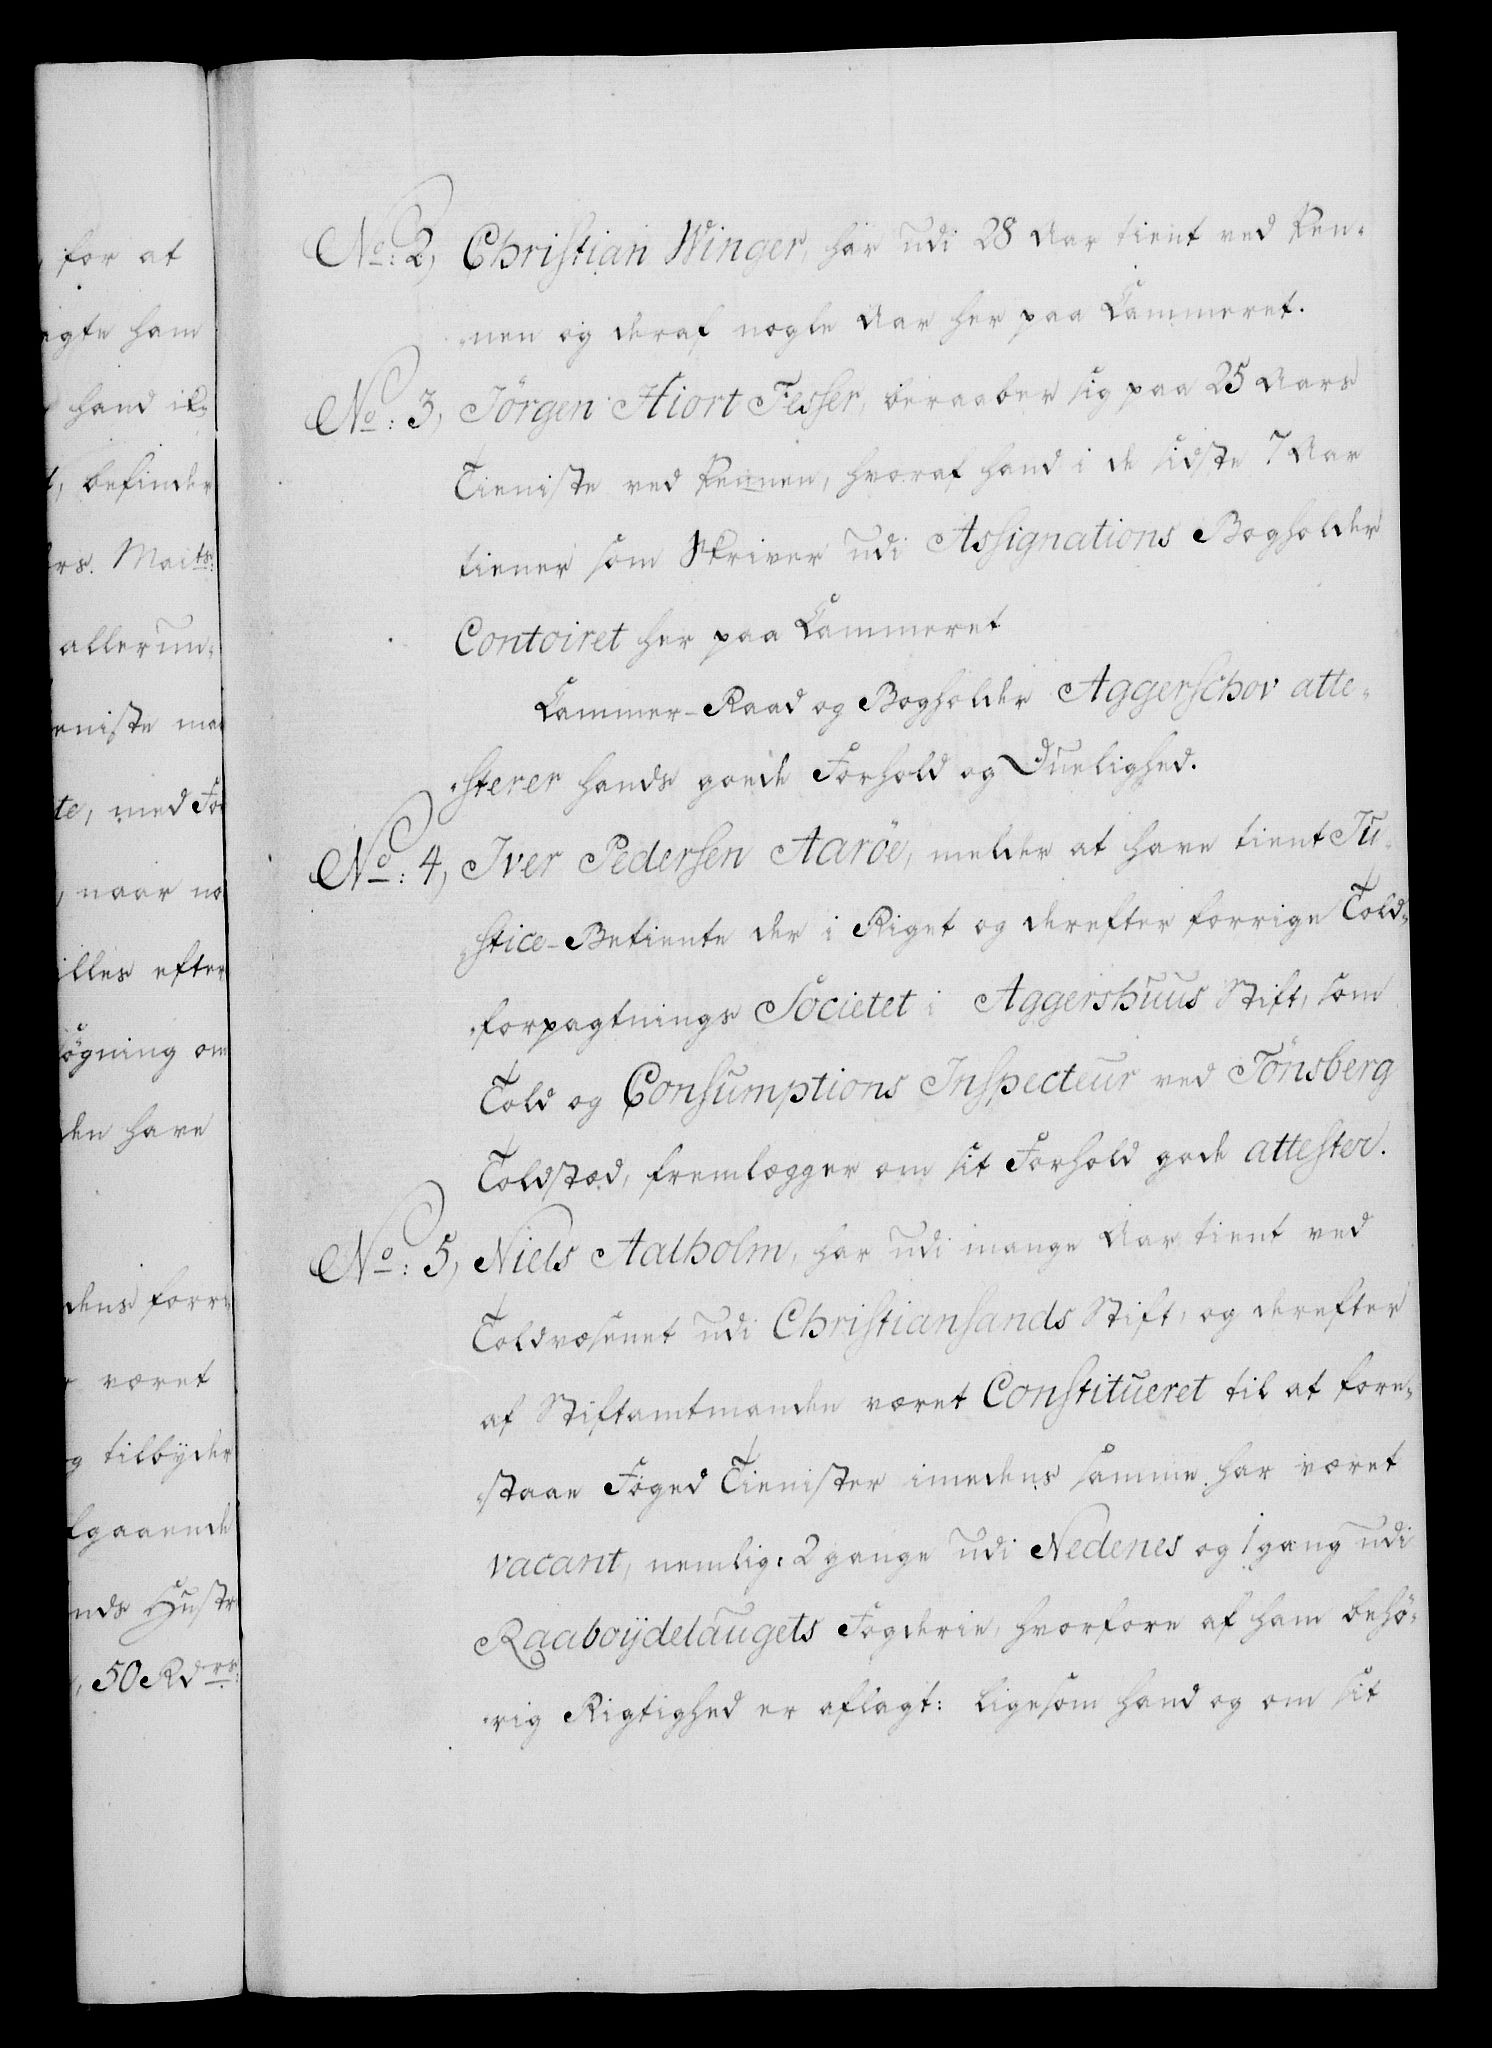 for at
igte ham
hand ik-
befinder
rs. Maits:
allerun-
eniste maa
te, med For
naar no
illes efter
øgning om
den have
dens forri
været
g tilbyder
gaaende
nds Hustr
50 Rdrs:
No: 2, Christian Winger, har udi 28 Aar tient ved Pen-
nen og deraf nogle Aar her paa Cammeret.
No: 3, Jörgen Hiort Fesser, beraaber sig paa 25 Aars
Tieniste ved Pennen, hvoraf hand i de sidste 7 Aar
tiener som Skriver udi Assignations Bogholder
Contoiret her paa Cammeret
Cammer-Raad og Bogholder Aggerschov atte-
sterer hands goede Forhold og Duelighed.
No: 4, Iver Pedersen Aaröe, melder at have tient Ju-
stice-Betiente der i Riget og derefter forrige Told-
forpagtnings Societet i Aggershuus Stift, som
Told og Consumptions Inspecteur ved Tönsberg
Toldstæd, fremlægger om sit Forhold gode attester.
No: 5, Niels Aalholm, har udi mange Aar tient ved
Toldvæsenet udi Christiansands Stift, og derefter
af Stiftamtmanden været Constitueret til at fore-
staae Foged Tienister imedens samme har været
vacant, nemlig: 2 gange udi Nedenes og 1 gang udi
Raaboijdelaugets Fogderie, hvorfore af ham behö-
rig Rigtighed er aflagt: ligesom hand og om sit